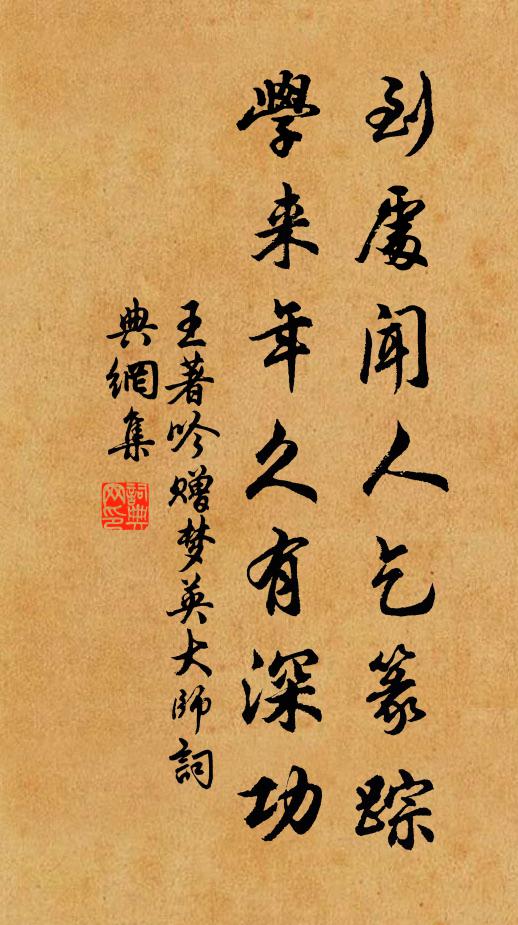 到處聞人乞篆踪
學来年久有深功
王著吟赠梦英大師詞
典網集
詞典
网印